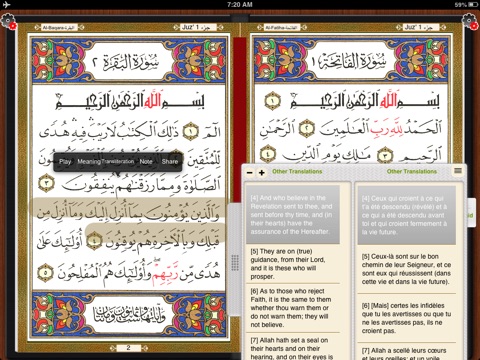 7:20 AM
89%
Al-Fatiha-الفاتحة
Juz' 1 جزء
سُورَةُ الفَاتِحَةِ ١
بِسْمِ اللَّهِ الرَّحْمَٰنِ الرَّحِيمِ ١
الْحَمْدُ لِلَّهِ رَبِّ الْعَٰلَمِينَ ٢ الرَّحْمَٰنِ
الرَّحِيمِ ٣ مَٰلِكِ يَوْمِ الدِّينِ ٤
Al-Baqara-البقرة
Juz' 1 جزء
سُورَةُ البَقَرَةِ ٢
بِسْمِ اللَّهِ الرَّحْمَٰنِ الرَّحِيمِ
الٓمٓ ١ ذَٰلِكَ الْكِتَٰبُ لَا رَيْبَ فِيهِ هُدًى
لِّلْمُتَّقِينَ
Play Meaning Transliteration Note Share
الصَّلَوٰةَ وَمِمَّا رَزَقْنَٰهُمْ يُنفِقُونَ ٣
وَالَّذِينَ يُؤْمِنُونَ بِمَا أُنزِلَ إِلَيْكَ وَمَا أُنزِلَ مِن
قَبْلِكَ وَبِالْآخِرَةِ هُمْ يُوقِنُونَ ٤ أُولَٰئِكَ عَلَىٰ
هُدًى مِّن رَّبِّهِمْ وَأُولَٰئِكَ هُمُ الْمُفْلِحُونَ ٥
2
Other Translations
[4] And who believe in the
Revelation sent to thee, and
sent before thy time, and (in
their hearts) have the
assurance of the Hereafter.
[5] They are on (true)
guidance, from their Lord,
and it is these who will
prosper.
[6] As to those who reject
Faith, it is the same to them
whether thou warn them or
do not warn them; they will
not believe.
[7] Allah hath set a seal on
their hearts and on their
hearing, and on their eyes is
Other Translations
[4] Ceux qui croient à ce qui
t'a été descendu (révélé) et à
ce qui a été descendu avant
toi et qui croient fermement à
la vie future.
[5] Ceux-là sont sur le bon
chemin de leur Seigneur, et
ce sont eux qui réussissent (dans
cette vie et dans la vie future).
[6] [Mais] certes les infidèles
que tu les avertisses ou que tu
ne les avertisses pas, ils ne
croient pas.
[7] Allah a scellé leurs cœurs
et leurs oreilles; et un voile